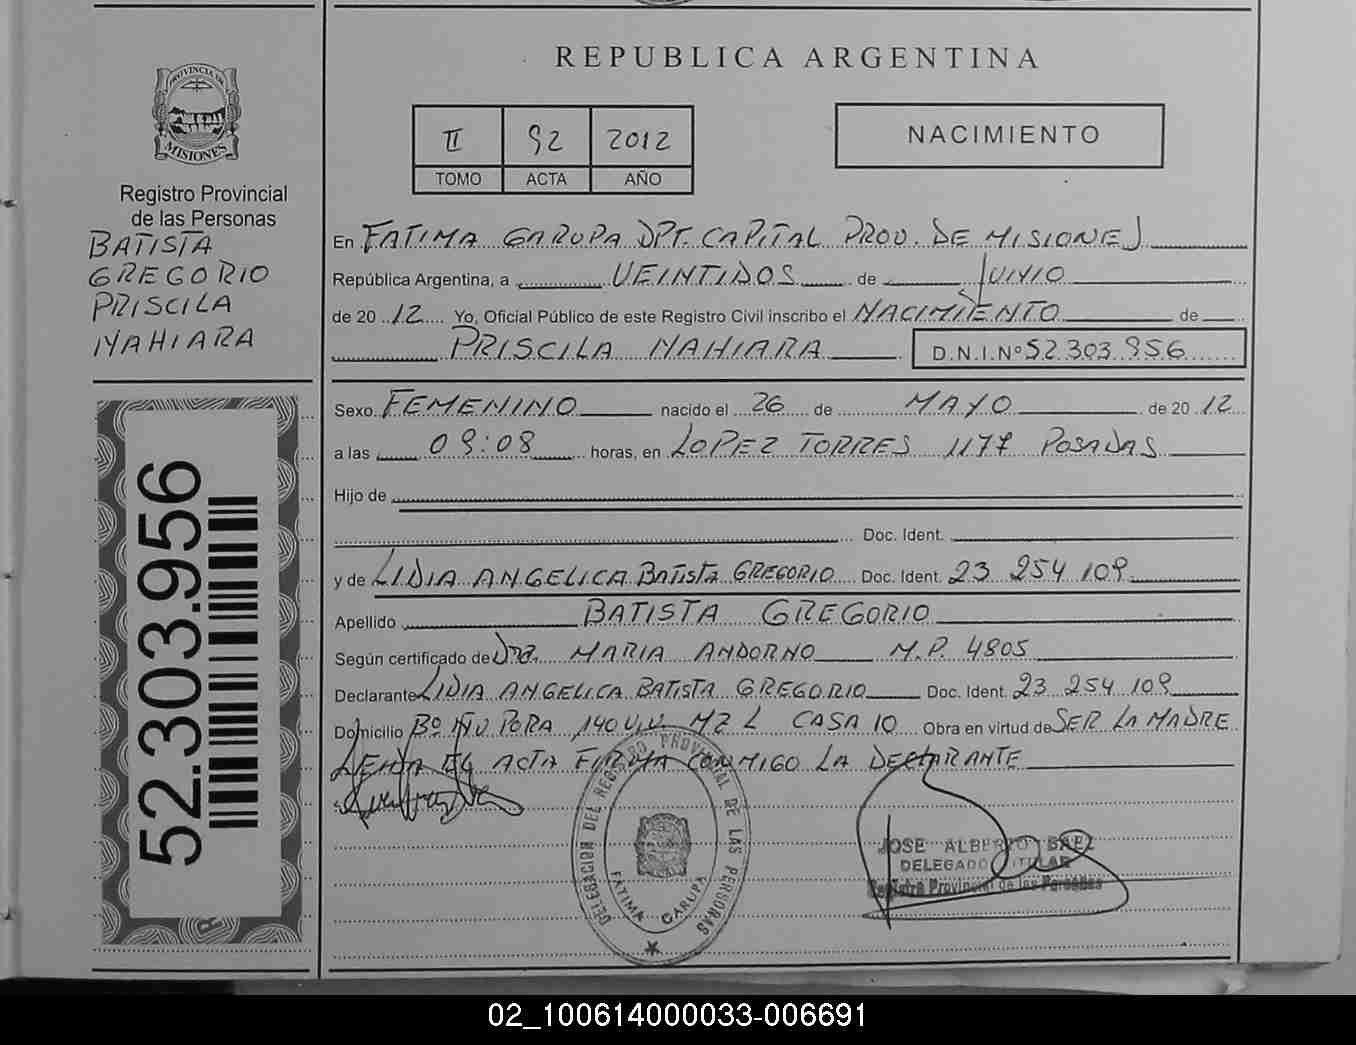 REPUBLICA ARGENTINA
PROVINCIA DE
MISIONES
II 92 2012
TOMO ACTA AÑO
NACIMIENTO
Registro Provincial
de las Personas
BATISTA
GREGORIO
PRISCILA
NAHIARA
52.303.956
En FATIMA GARUPA DPT. CAPITAL PROV. DE MISIONES
República Argentina, a VEINTIDOS de JUNIO
de 20 12 Yo, Oficial Público de este Registro Civil inscribo el NACIMIENTO de
PRISCILA NAHIARA D.N.I.Nº 52.303.956
Sexo FEMENINO nacido el 26 de MAYO de 20 12
a las 09:08 horas, en LOPEZ TORRES 1177 POSADAS
Hijo de
Doc. Ident.
y de LIDIA ANGELICA BATISTA GREGORIO Doc. Ident. 23 254 109
Apellido BATISTA GREGORIO
Según certificado de Dra. MARIA ANDORNO M.P. 4805
Declarante LIDIA ANGELICA BATISTA GREGORIO Doc. Ident. 23 254 109
Domicilio Bº ÑU PORA 140 VIV. MZ L CASA 10 Obra en virtud de SER LA MADRE
LEIDA EL ACTA FIRMA CONMIGO LA DECLARANTE
DELEGACION DEL REGISTRO PROVINCIAL DE LAS PERSONAS
FATIMA GARUPA
JOSE ALBERTO BAEZ
DELEGADO TITULAR
Registro Provincial de las Personas
02_100614000033-006691